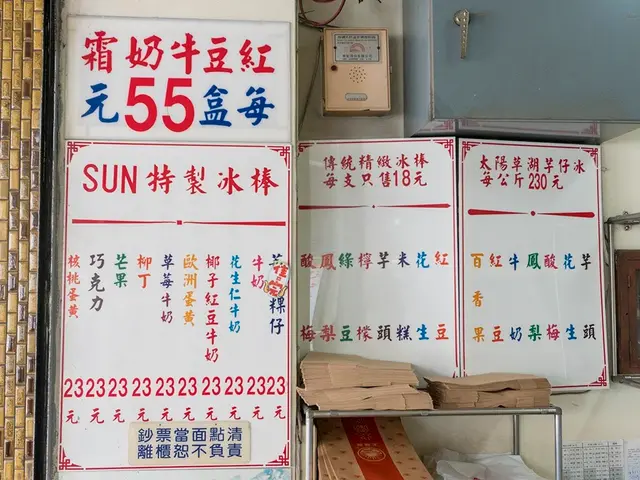 紅豆牛奶霜
每盒55元
SUN特製冰棒
牛奶
花生仁牛奶
椰子紅豆牛奶
歐洲蛋黃
草莓牛奶
柳丁
芒果
巧克力
核桃蛋黃
23 23 23 23 23 23 23 23 23 23
元 元 元 元 元 元 元 元 元 元
鈔票當面點清
離櫃恕不負責
傳統精緻冰棒
每支只售18元
紅豆
花生
米糕
芋頭
檸檬
綠豆
鳳梨
酸梅
太陽草湖芋仔冰
每公斤230元
芋頭
花生
酸梅
鳳梨
牛奶
紅豆
百香果